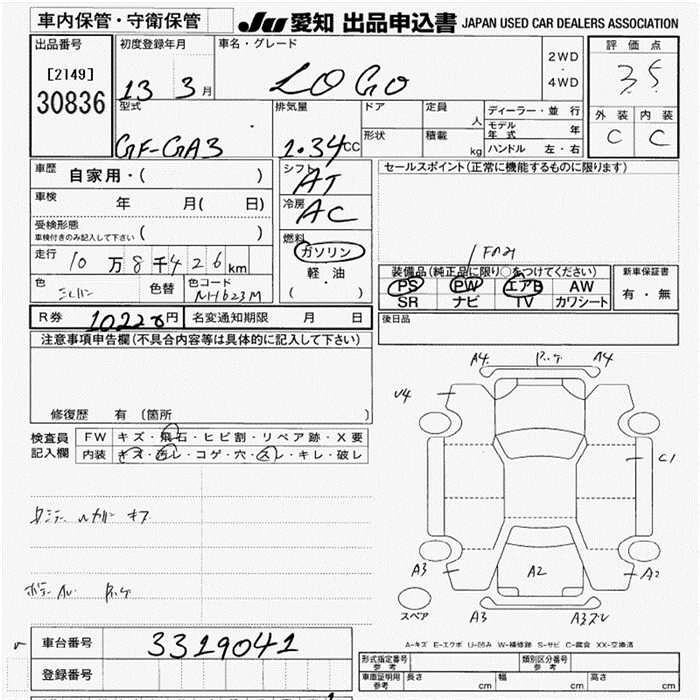 車内保管・守衛保管
JU 愛知 出品申込書 JAPAN USED CAR DEALERS ASSOCIATION
出品番号
[2149]
30836
初度登録年月
13 3 月
車名・グレード
LOGO
2WD
・
4WD
評価点
3.5
外装 内装
C C
型式
GF-GA3
排気量
1.34 CC
ドア 定員
人
形状 積載
kg
ディーラー・並行
モデル年式 年
ハンドル 左・右
車歴 自家用・( )
車検 年 月( 日)
受検形態
車検付きのみ記入して下さい ( )
走行 10 万 8 千 4 2 6 km
色 色替 色コード
NH623M
シフト
AT
冷房
AC
燃料
ガソリン
軽油
( )
セールスポイント(正常に機能するものに限ります)
装備品(純正品に限り○をつけてください)
PS PW エアB AW
SR ナビ TV カワシート
新車保証書
有・無
R券 10220 円 名変通知期限 月 日
後日品
注意事項申告欄(不具合内容等は具体的に記入して下さい)
修復歴 有 (箇所 )
検査員
記入欄
FW キズ・飛石・ヒビ割・リペア跡・X要
内装 キズ・汚レ・コゲ・穴・スレ・キレ・破レ
A4 A4
U4
C1
A3 A2 A2
スペア
A3 A3ズレ
A-キズ E-エクボ U-凹み W-補修跡 S-サビ C-腐食 XX-交換済
車台番号 3319041
登録番号
形式指定番号
参考
類別区分番号
参考
車庫証明用
参考
長さ cm 幅 cm 高さ cm